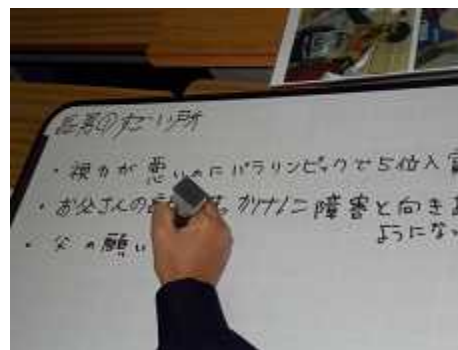 のすごい所
・視力が悪いのにパラリンピックで5位入賞
・お父さんの かけに障害と向き
ようにな
・父の願い